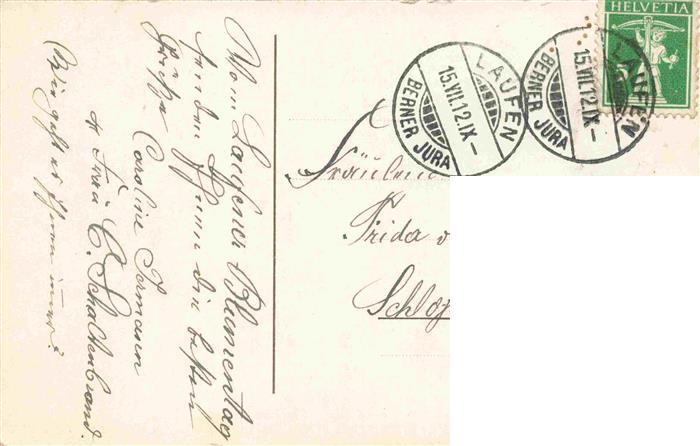 Vom Laufener Blumentag
senden Ihnen die besten
Grüsse
Caroline Jermann
u. Frau C. Schaltenbrand.
Wie geht es Ihnen immer?
HELVETIA
5
LAUFEN
15.VII.12.IX–
BERNER JURA
LAUFEN
15.VII.12.IX–
BERNER JURA
Fräulein
Frida v
Schloß